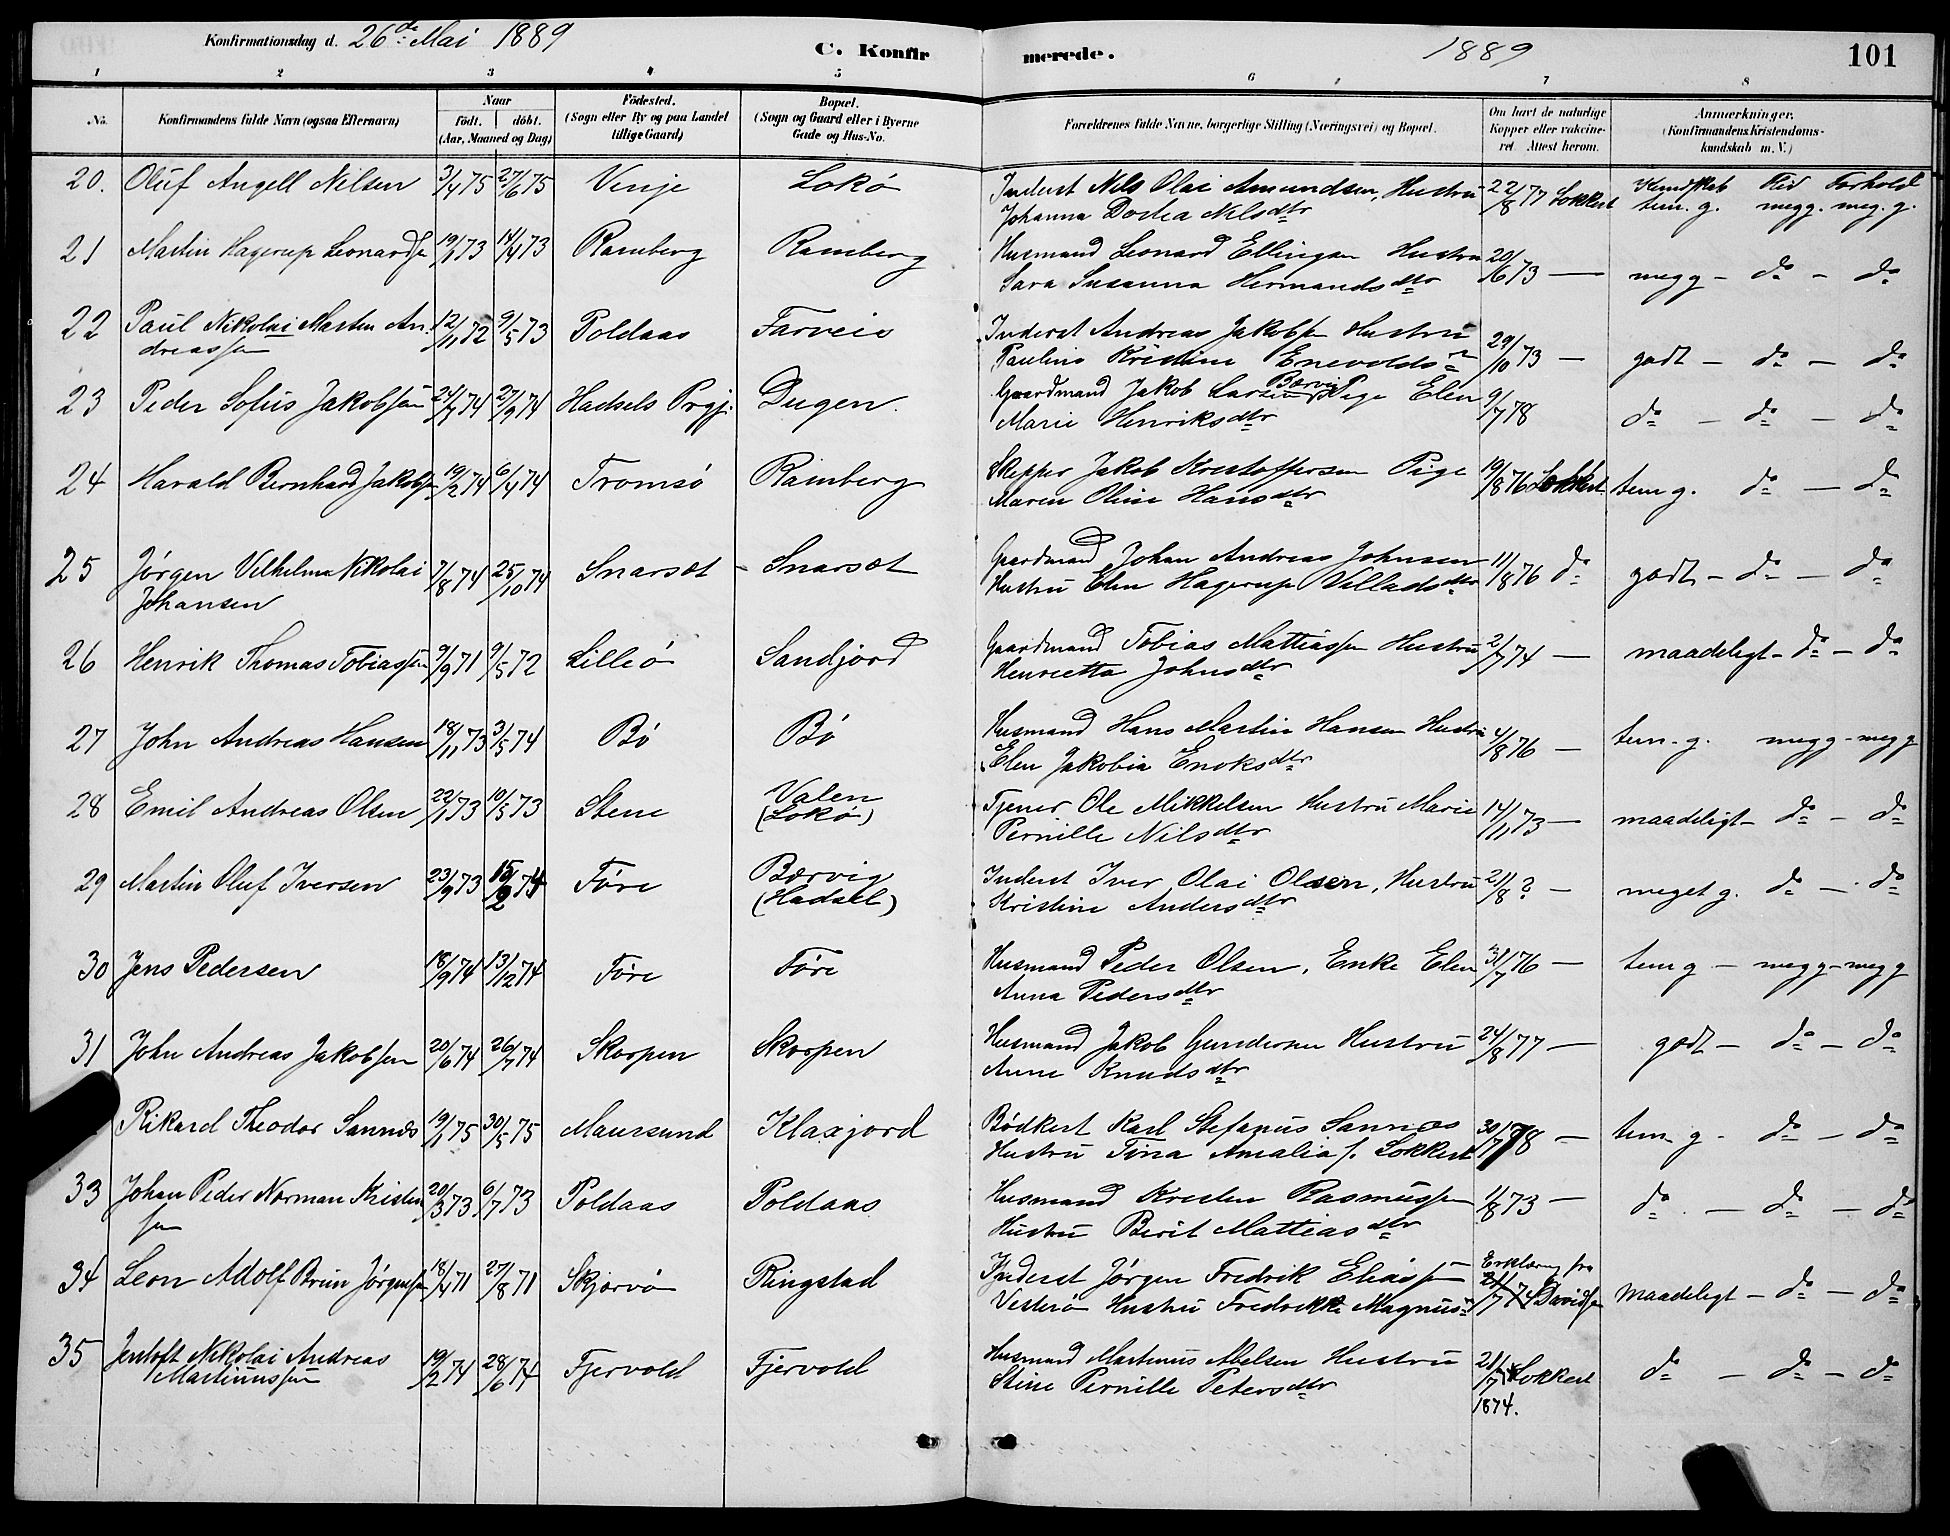 Konfirmationsdag d. 26de Mai 1889 C. Konfirmerede. 1889 101
1 2 3 4 5 6 7 8
No. Konfirmandens fulde Navn (ogsaa Efternavn) Naar født. døbt. (Aar, Maaned og Dag) Fødested. (Sogn eller By og paa Landet tillige Gaard) Bopæl. (Sogn og Gaard eller i Byerne Gade og Hus-No. Forældrenes fulde Navne, borgerlige Stilling (Næringsvei) og Bopæl. Om havt de naturlige Kopper eller vakcineret. Attest herom. Anmærkninger. (Konfirmandens Kristendomskundskab m. V.)
Kundskab Flid Forhold
20. Oluf Angell Nilsen 3/4 75 27/6 75 Venje Lokø Inderst Nils Olai Amundsen, Hustru 22/8 77 Lokkert tem. g. megg. meg. g.
Johanna Dortea Nilsdtr
21 Martin Hagerup Leonards. 19/1 73 14/4 73 Ramberg Ramberg Husmand Leonard Ellingsen Hustru 20/6 73 — megg – do – do
Sara Susanna Hermandsdtr
22 Paul Nikolai Martin An- 12/11 72 9/5 73 Poldaas Farveie Inderst Andreas Jakobsen Hustru 29/10 73 — godt – do – do
dreassen Pauline Kristine Enevolds
23 Peder Sofus Jakobsen 24/7 74 27/9 74 Hadsels Prgj. Dugen. Gaardmand Jakob Larsen Børvig Pige Elen 9/7 78 do – do – do
Marie Henriksdtr
24 Harald Bernhard Jakobsen 19/2 74 6/4 74 Tromsø Ramberg Skipper Jakob Kristoffersen Pige 19/8 76 Lokkert tem g. do – do
Maren Oline Hansdtr
25 Jørgen Vilhelm Nikolai 7/8 74 25/10 74 Snarset – Snarset Gaardmand Johan Andreas Johnsen 11/8 76 do godt – do – do
Johansen Hustru Elen Hagerup Villadsdtr
26 Henrik Thomas Tobiassen 9/9 71 9/5 72 Lilleø Sandjord Gaardmand Tobias Mattiassen Hustru 2/7 74 — maadeligt – do – do
Henrietta Johnsdtr
27 John Andreas Hansen 18/11 73 3/5 74 Bø Bø Husmand Hans Martin Hansen Hustru 4/8 76 — tem. g. megg – megg
Elen Jakobia Enoksdtr
28 Emil Andreas Olsen 22/1 73 10/5 73 Stene Valen Tjener Ole Mikkelsen Hustru Marie 14/11 73 — maadeligt – do – do
(Lokø) Pernille Nilsdtr
29 Martin Oluf Iversen 23/9 73 15/2 74 Føre Børvig Inderst Iver Olai Olsen, Hustru 21/8 ? — meget g. do – do
(Hadsel) Kristine Andersdtr
30 Jens Pedersen 18/9 74 13/12 74 Føre Føre Husmand Peder Olsen, Enke Elen 31/7 76 — tem g – megg – megg
Anna Pedersdtr
31 John Andreas Jakobsen 20/6 74 26/7 74 Skorpen Skorpen Husmand Jakob Gundersen Hustru 24/8 77 — godt – do – do
Anne Knudsdtr
Rikard Theodor Sannes 19/1 75 30/5 75 Maursund Klaxjord Bødkert Karl Stefanus Sannes 30/7 78 — tem g – do – do
Hustru Tina Amalia f. Lokkert
33 Johan Peder Norman Kristen 20/3 73 6/7 73 Poldaas Poldaas Husmand Kristen Rasmussen 1/8 73 — do – do – do
sen Hustru Berit Mattiasdtr
34 Leon Adolf Brun Jørgensen 18/4 71 27/8 71 Skjærvø Ringstad Inderst Jørgen Fredrik Eliassen Erklæring fra 21/7 74 Davidsen maadeligt – do – do
Vesterø Hustru Fredrikke Magnus
35 Jentoft Nikolai Andreas 19/2 74 28/6 74 Fjervold Fjervold Husmand Martinus Abelsen Hustru 21/7 Lokkert do – do – do
Martinussen Stine Pernille Petersdtr 1874.